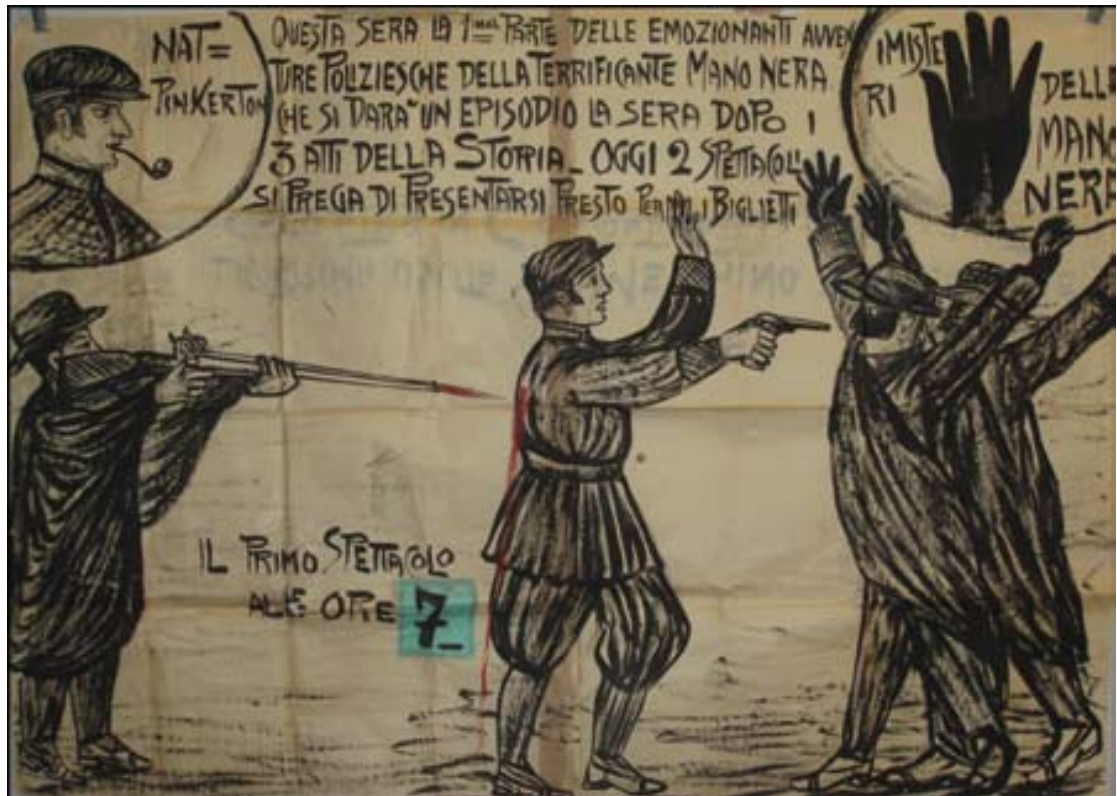 NAT=
PINKERTON
QUESTA SERA LA 1ma PARTE DELLE EMOZIONANTI AVVEN
TURE POLIZIESCHE DELLA TERRIFICANTE MANO NERA
CHE SI DARA UN EPISODIO LA SERA DOPO I
3 ATTI DELLA STORIA - OGGI 2 SPETTACOLI
SI PREGA DI PRESENTARSI PRESTO PER I BIGLIETTI
I MISTE
RI
DELLA
MANO
NERA
IL PRIMO SPETTACOLO
ALLE ORE 7-